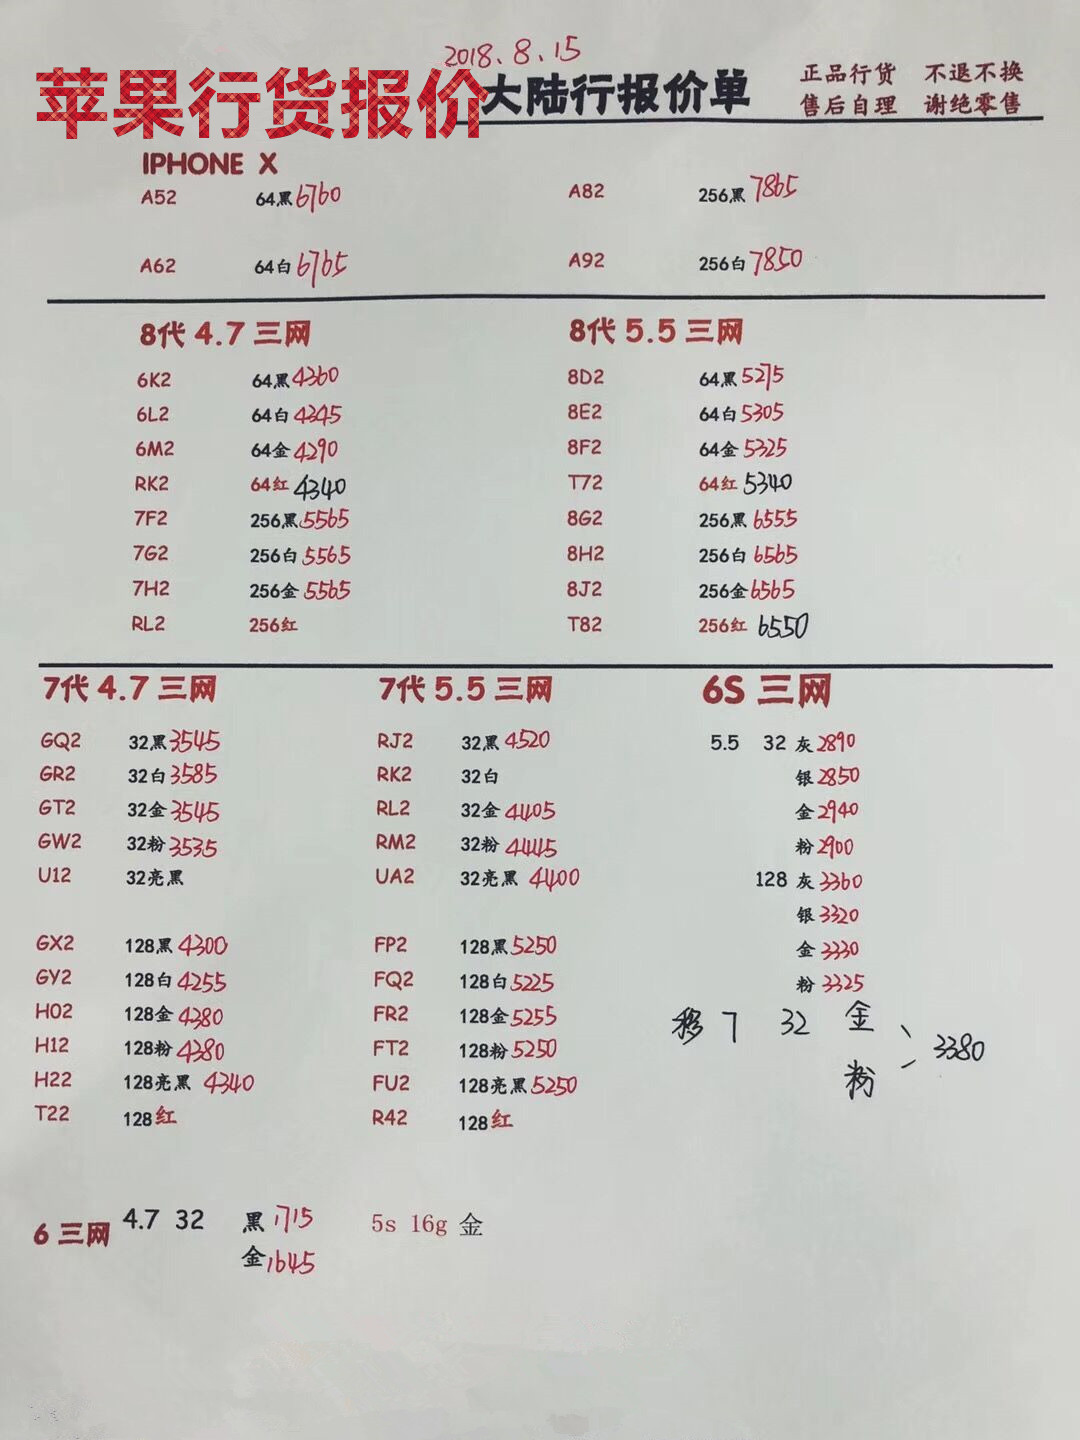 2018.8.15
苹果行货报价 大陆行报价单 正品行货 不退不换
售后自理 谢绝零售
IPHONE X
A52 64黑 6760 A82 256黑 7865
A62 64白 6765 A92 256白 7850
8代 4.7 三网 8代 5.5 三网
6K2 64黑 4360 8D2 64黑 5275
6L2 64白 4345 8E2 64白 5305
6M2 64金 4290 8F2 64金 5325
RK2 64红 4340 T72 64红 5340
7F2 256黑 5565 8G2 256黑 6555
7G2 256白 5565 8H2 256白 6565
7H2 256金 5565 8J2 256金 6565
RL2 256红 T82 256红 6550
7代 4.7 三网 7代 5.5 三网 6S 三网
GQ2 32黑 3545 RJ2 32黑 4520 5.5 32 灰 2890
GR2 32白 3585 RK2 32白 银 2850
GT2 32金 3545 RL2 32金 4405 金 2940
GW2 32粉 3535 RM2 32粉 4445 粉 2900
U12 32亮黑 UA2 32亮黑 4400 128 灰 3360
银 3320
GX2 128黑 4300 FP2 128黑 5250 金 3330
GY2 128白 4255 FQ2 128白 5225 粉 3325
H02 128金 4380 FR2 128金 5255 移 7 32 金
H12 128粉 4380 FT2 128粉 5250 3380
H22 128亮黑 4340 FU2 128亮黑 5250 粉
T22 128红 R42 128红
6 三网 4.7 32 黑 1715 5s 16g 金
金 1645